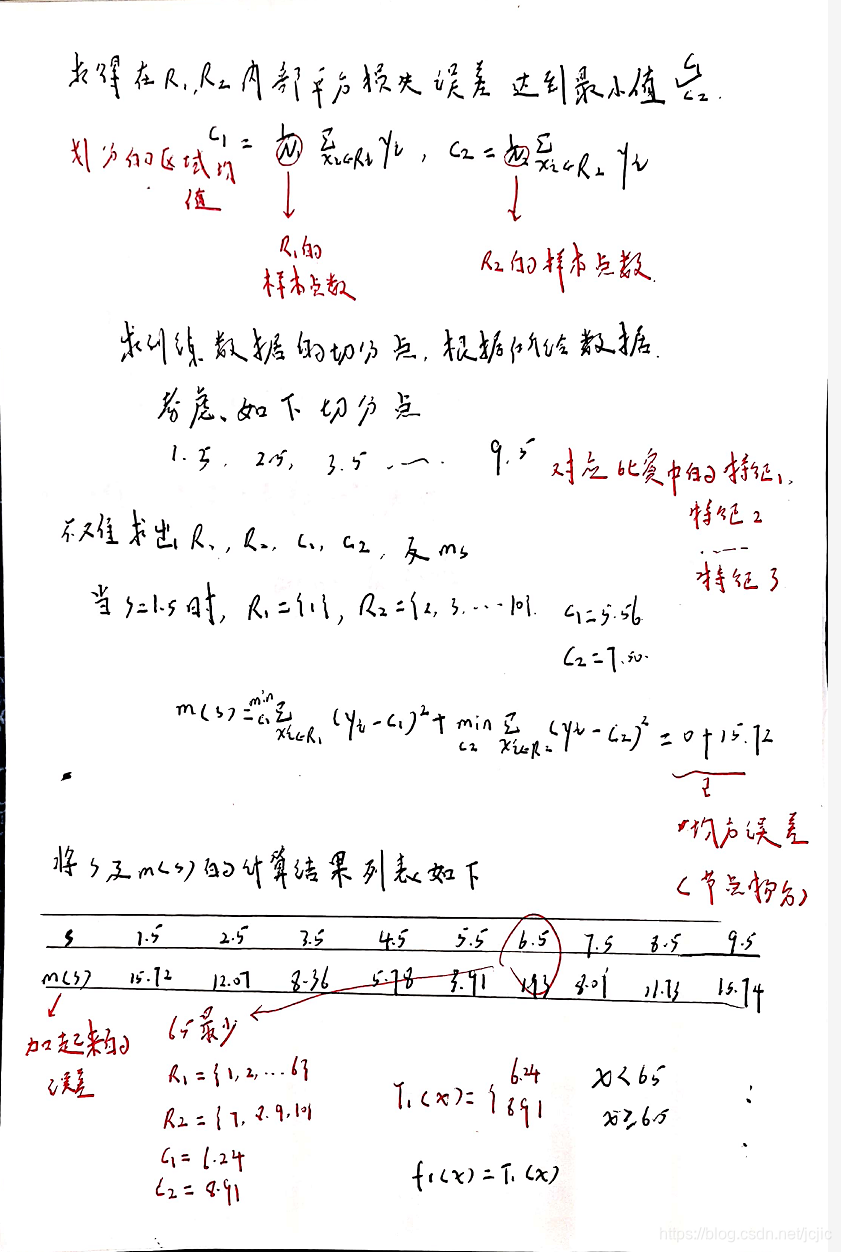 求得在R1,R2内部平方损失误差达到最小值 c1 c2.
c1 = 1/N1 Σxi∈R1 yi, c2 = 1/N2 Σxi∈R2 yi
划分的区域均值
R1的样本点数
R2的样本点数
求训练数据的切分点,根据所给数据.
考虑、如下切分点
1.5, 2.5, 3.5 ... 9.5
对应比赛中的特征1,
特征2
......
特征3
不难求出R1, R2, c1, c2, 及ms
当s=1.5时, R1={1}, R2={2, 3, ...10}. c1=5.56
c2=7.50.
m(s)=min c1 Σxi∈R1 (yi-c1)²+min c2 Σxi∈R2 (yi-c2)²=0+15.72
均方误差
(节点拆分)
将s及m(s)的计算结果列表如下
s 1.5 2.5 3.5 4.5 5.5 6.5 7.5 8.5 9.5
m(s) 15.72 12.07 8.36 5.78 3.91 1.93 8.01 11.73 15.74
加起来的误差
6.5最少
R1={1,2,...6}
R2={7,8.9,10}
c1=6.24
c2=8.91
T1(x)={ 6.24 x<6.5
8.91 x≥6.5
f1(x)=T1(x)
https://blog.csdn.net/jcjic